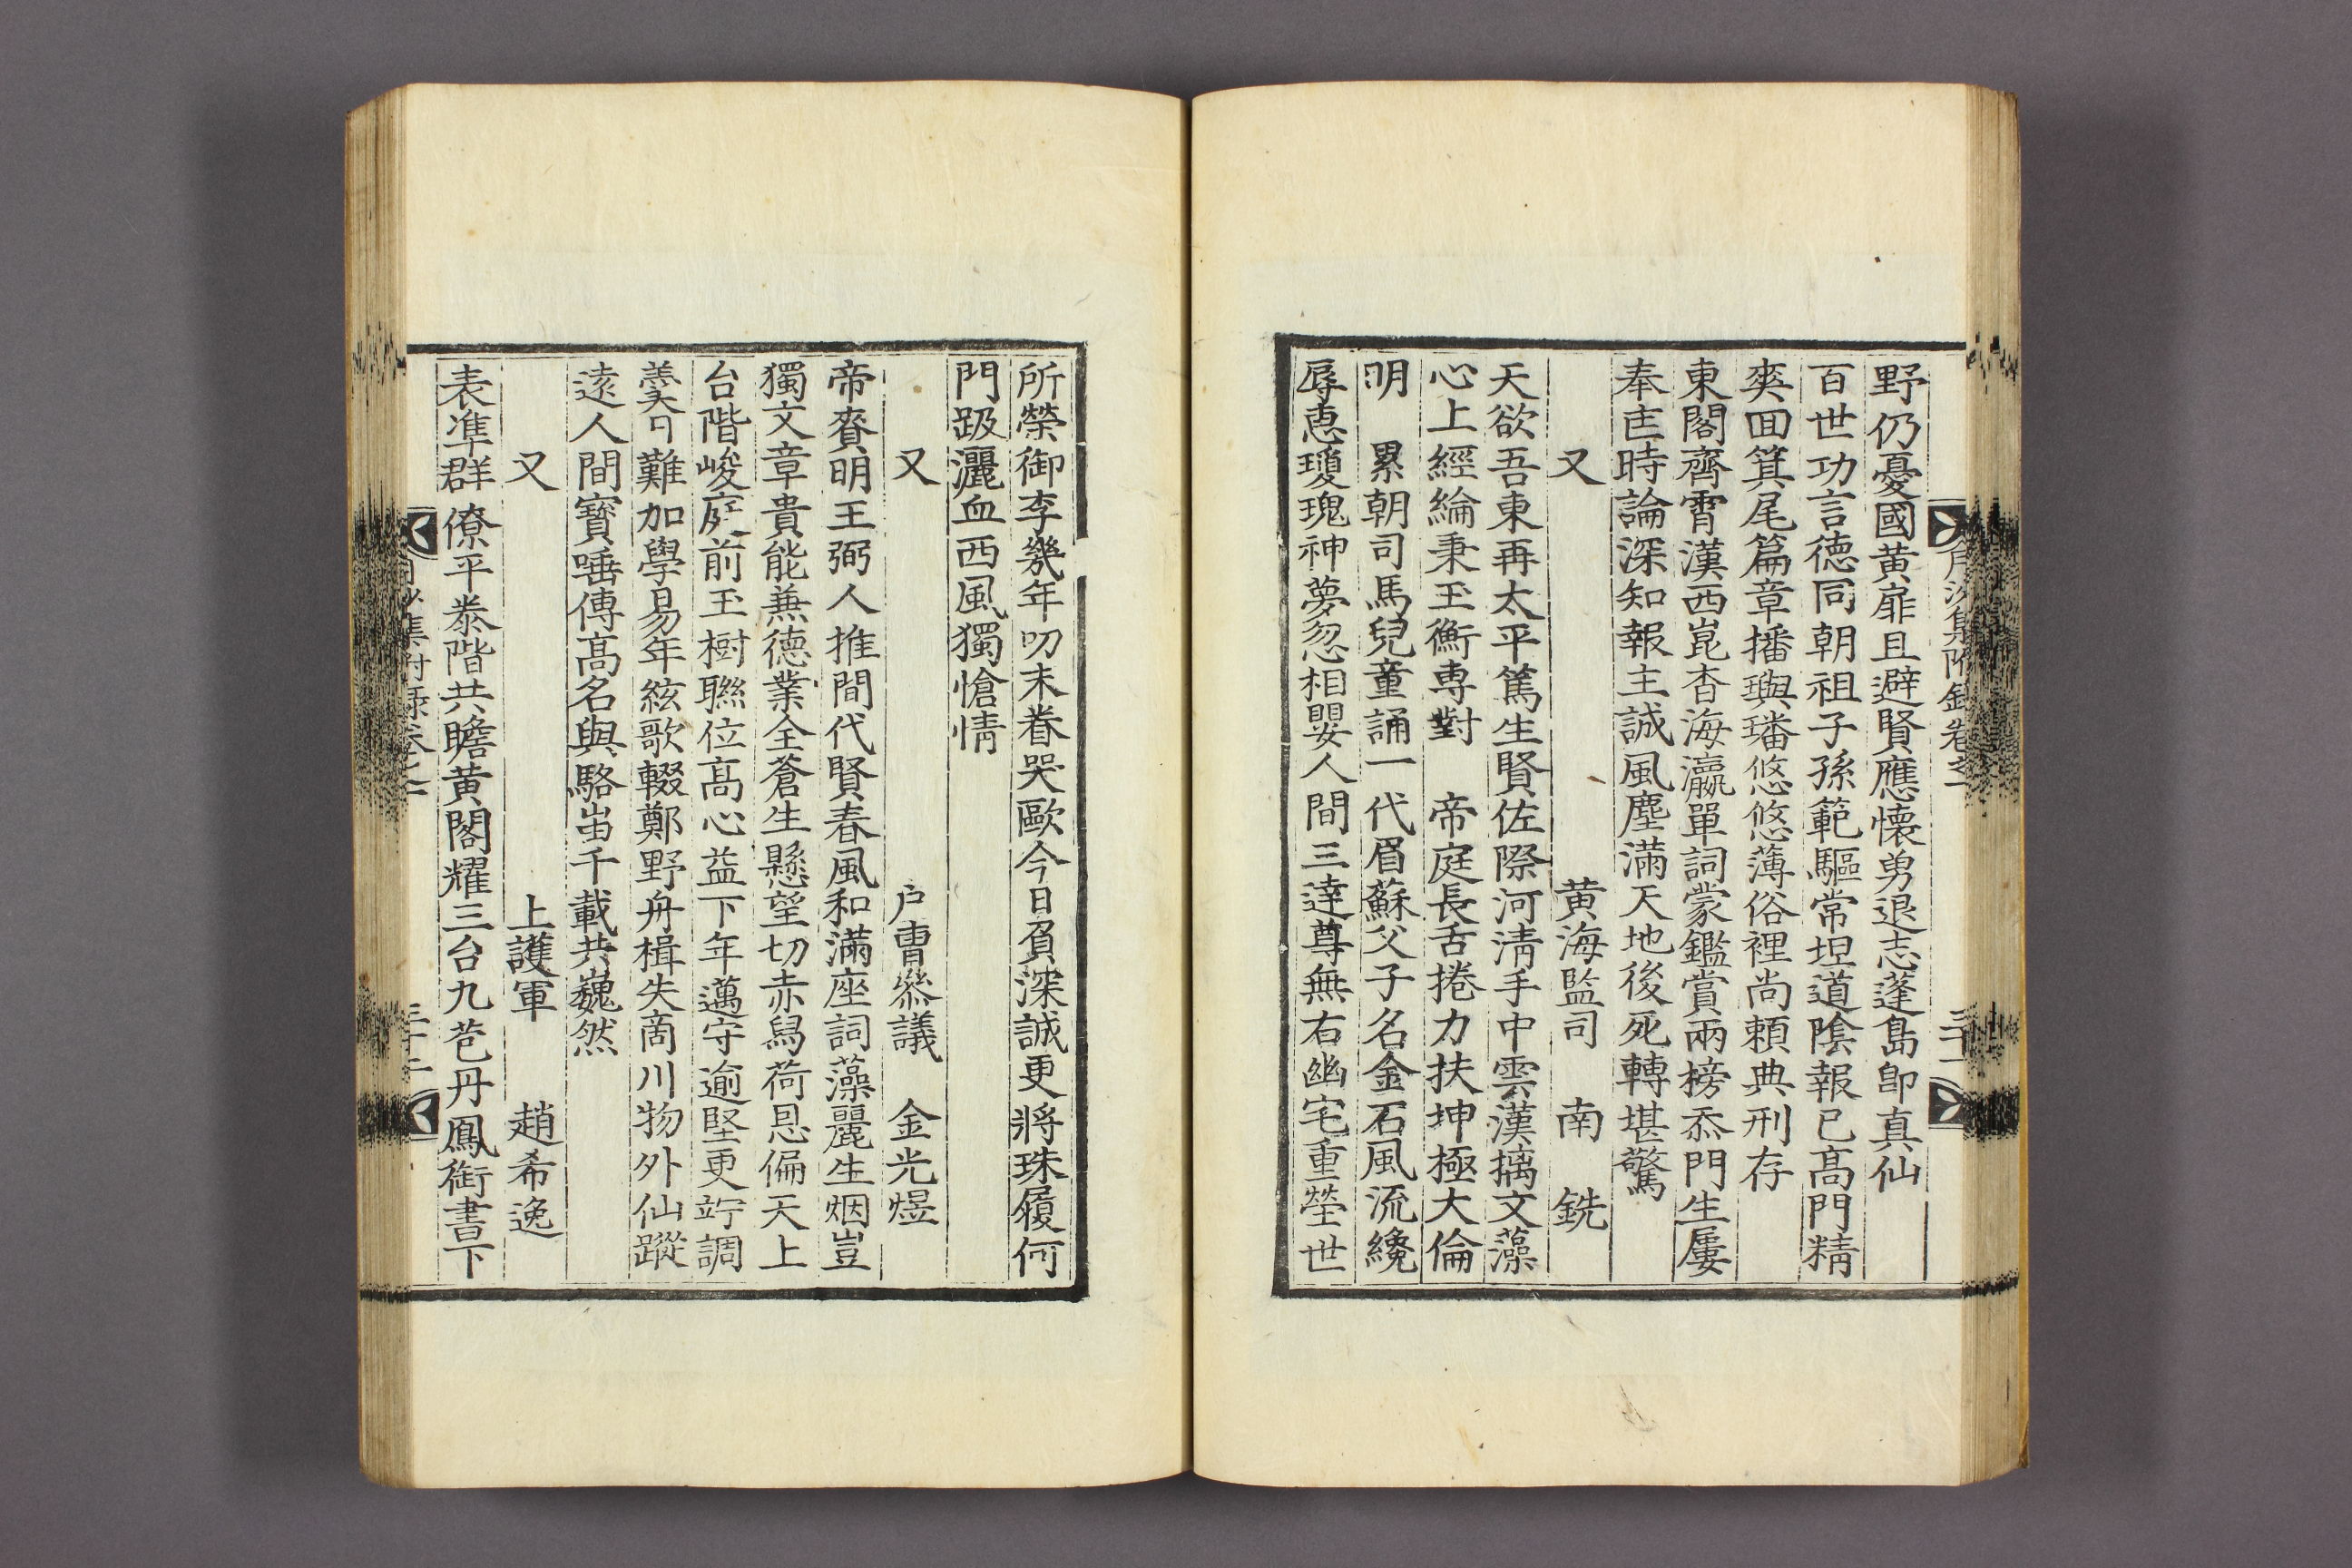 月沙集附錄卷之一
三十一
野仍憂國黄扉且避賢應懷勇退志蓬島卽真仙
百世功言德同朝祖子孫範驅常坦道陰報已髙門精
爽回箕尾篇章播璵璠悠悠薄俗裡尚頼典刑存
東閣齊霄漢西崑杳海瀛單詞蒙鑑賞兩榜忝門生屢
奉匡時論深知報主誠風塵滿天地後死轉堪驚
又 黄海監司 南 銑
天欲吾東再太平篤生賢佐際河淸手中雲漢摛文藻
心上經綸秉玉衡専對 帝庭長舌捲力扶坤極大倫
明 累朝司馬兒童誦一代眉蘇父子名金石風流纔
辱惠瓊瑰神夢忽相嬰人間三達尊無右幽宅重塋世
所榮御李幾年叨末眷哭歐今日負深誠更將珠履何
門跋灑血西風獨愴情
又 户曹叅議 金光煜
帝賚明王弼人推間代賢春風和滿座詞藻麗生烟豈
獨文章貴能兼德業全蒼生懸望切赤舄荷恩偏天上
台階峻庭前玉樹聯位髙心益下年邁守逾堅更竚調
羹可難加學易年絃歌輟鄭野舟楫失啇川物外仙蹤
逺人間寶唾傳髙名與駱峀千載共巍然
又 上護軍 趙希逸
表準群僚平泰階共瞻黄閣耀三台九苞丹鳳銜書下